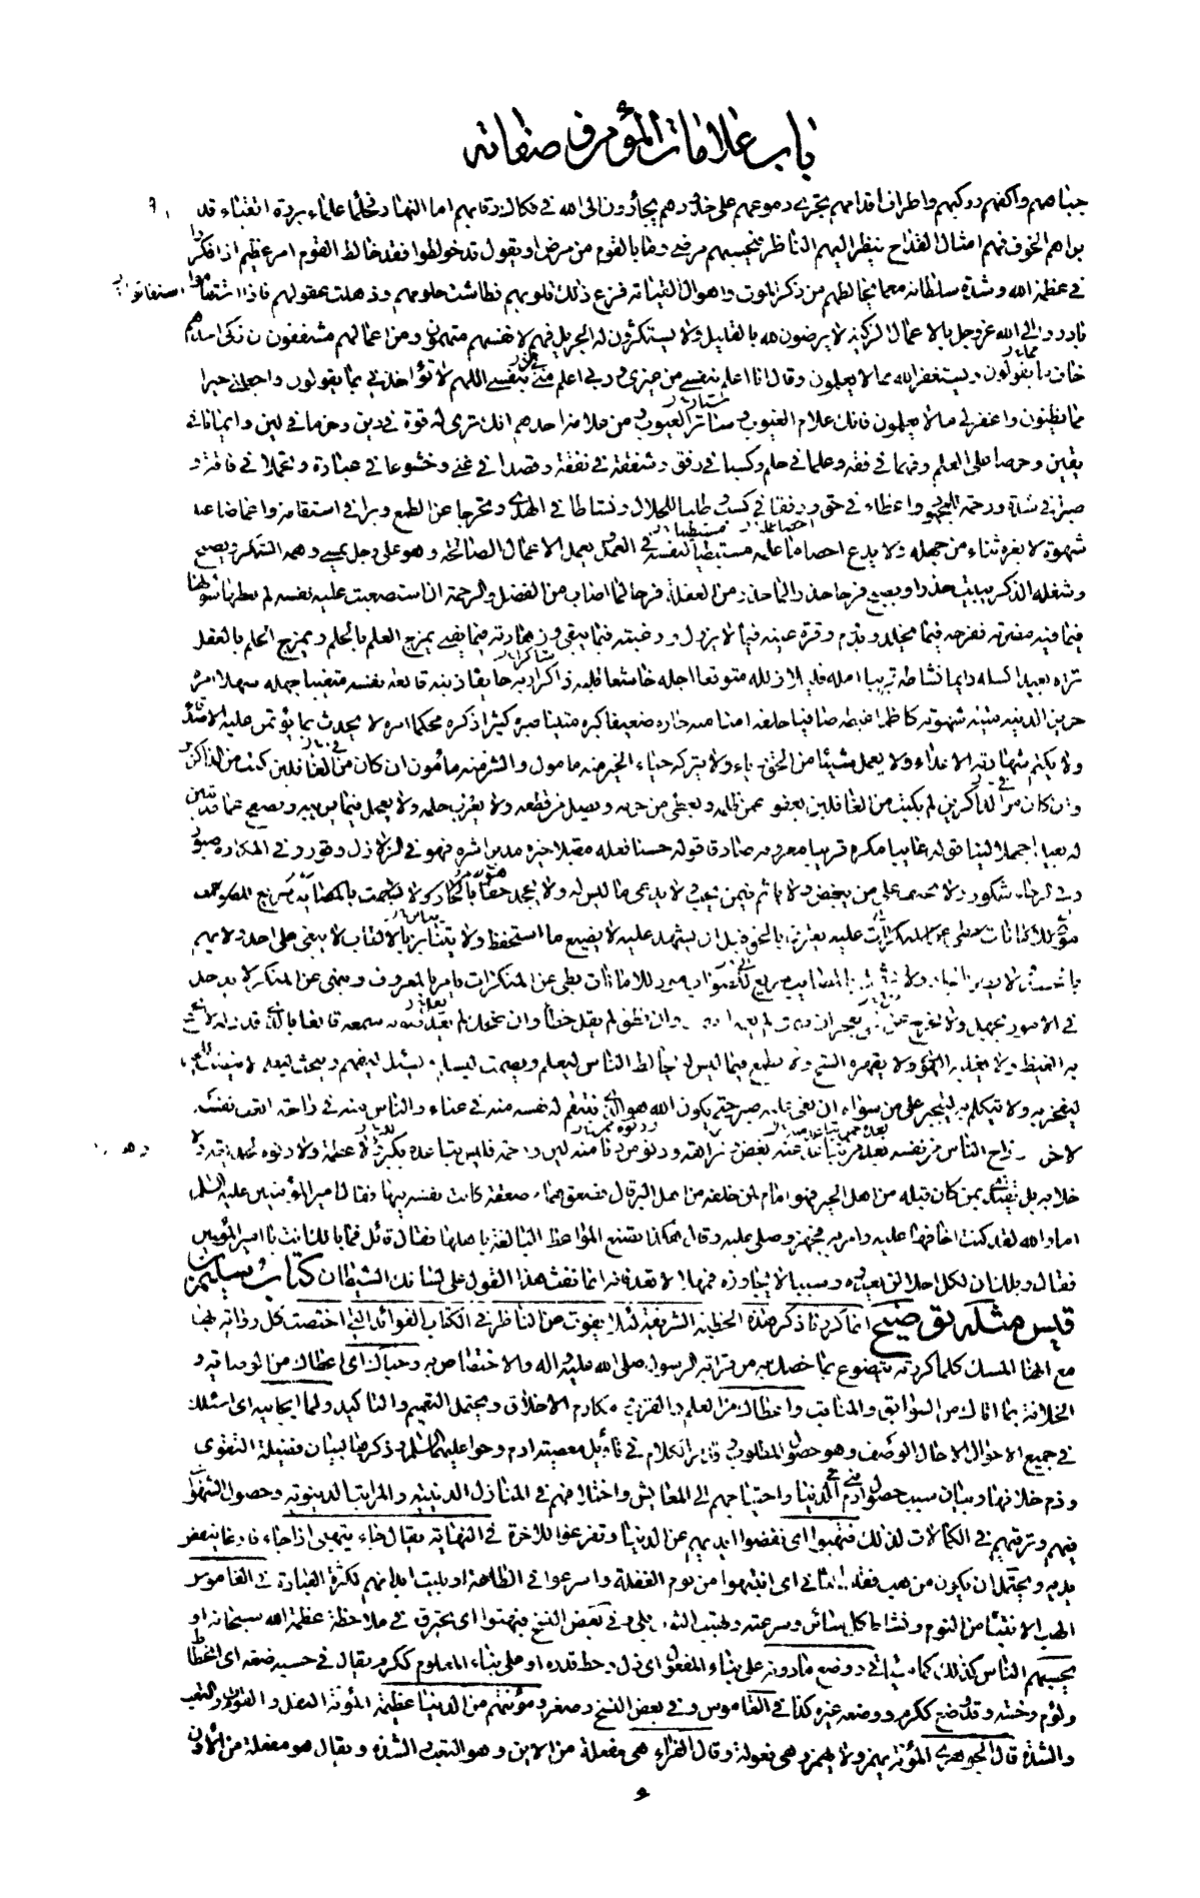 باب علامات المؤمن و صفاته
جباههم واكفهم وركبهم واطراف اقدامهم تجري دموعهم على خدودهم يجأرون الى الله في فكاك رقابهم اما النهار فحلماء علماء بررة اتقياء قد
براهم الخوف فهم امثال القداح ينظر اليهم الناظر فيحسبهم مرضى وما بالقوم من مرض او يقول قد خولطوا فقد خالط القوم امر عظيم اذا فكروا
في عظمة الله وشدة سلطانه مع ما يخالطهم من ذكر الموت واهوال القيامة فزع ذلك قلوبهم فطاشت حلومهم وذهلت عقولهم فاذا استقاموا
بادروا الى الله عز وجل بالاعمال الزكية لا يرضون لله بالقليل ولا يستكثرون له الجزيل فهم لانفسهم متهمون ومن اعمالهم مشفقون ان زكى احدهم
خاف مما يقولون ويستغفر الله مما لا يعلمون وقال انا اعلم بنفسي من غيري وربي اعلم مني بنفسي اللهم لا تؤاخذني بما يقولون واجعلني خيرا
مما يظنون واغفر لي ما لا يعلمون فانك علام الغيوب وساتر العيوب ومن علامة احدهم انك ترى له قوة في دين وحزما في لين وايمانا في
يقين وحرصا على العلم وفهما في فقه وعلما في حلم وكسبا في رفق وشفقة في نفقة وقصدا في غنى وخشوعا في عبادة وتحملا في فاقة و
صبرا في شدة ورحمة للمجهود واعطاء في حق ورفقا في كسب وطلبا للحلال ونشاطا في الهدى وتحرجا عن الطمع وبرا في استقامة واغماضا عند
شهوة لا يغره ثناء من جهله ولا يدع احصاء ما عمله مستبطئا لنفسه في العمل يعمل الاعمال الصالحة وهو على وجل يمسي وهمه الشكر ويصبح
وشغله الذكر يبيت حذرا ويصبح فرحا حذرا لما حذر من الغفلة فرحا لما اصاب من الفضل والرحمة ان استصعبت عليه نفسه لم يعطها سؤلها
فيما فيه مضرته ففرحه فيما يخلد ويدوم وقرة عينه فيما لا يزول ورغبته فيما يبقى وزهادته فيما يفنى يمزج العلم بالحلم ويمزج الحلم بالعقل
تراه بعيدا كسله دايما نشاطه قريبا امله قليلا زلله متوقعا اجله خاشعا قلبه ذاكرا ربه خايفا ذنبه قانعة نفسه متغيبا جهله سهلا امره
حريزا لدينه ميتة شهوته كاظما غيظه صافيا خلقه امنا منه جاره ضعيفا كبره متينا صبره كثيرا ذكره محكما امره لا يحدث بما يؤتمن عليه الاصدقاء
ولا يكتم شهادته الاعداء ولا يعمل شيئا من الحق رياء ولا يتركه حياء الخير منه مامول والشر منه مأمون ان كان من الغافلين كتب من الذاكرين
وان كان من الذاكرين لم يكتب من الغافلين يعفو عمن ظلمه ويعطي من حرمه ويصل من قطعه ولا يعزب حلمه ولا يعجل فيما يريبه ويصفح عما قد تبين
له بعيدا جهله لينا قوله غايبا مكره قريبا معروفه صادقا قوله حسنا فعله مقبلا خيره مدبرا شره فهو في الزلازل وقور وفي المكاره صبور
وفي الرخاء شكور لا يحيف على من يبغض ولا يأثم فيمن يحب ولا يدعي ما ليس له ولا يجحد حقا
عليه يعترف بالحق قبل ان يشهد عليه لا يضيع ما استحفظ ولا يتنابز بالالقاب لا يبغي على احد ولا يهم
بالمصايب سريع للصواب مؤد للامانات بطئ عن المنكرات يامر بالمعروف وينهى عن المنكر لا يدخل
في الامور بجهل ولا يخرج عن الحق بعجز ان صمت لم يغمه الصمت وان نطق لم يقل خطأ وان ضحك لم يعد صوته سمعه قانعا بالذي قدر له لا يجمح
به الغيظ ولا يغلبه الهوى ولا يقهره الشح ولا يطمع فيما ليس له يخالط الناس ليعلم ويصمت ليسلم ويسئل ليفهم ويبحث ليعلم
ليفخر به ولا يتكلم به ليتجبر على من سواه ان بغي عليه صبر حتى يكون الله هو الذي ينتقم له نفسه منه في عناء والناس منه في راحة اتعب نفسه
لاخرته واراح الناس من نفسه بعده عمن تباعد عنه بغض ونزاهة ودنوه ممن دنا منه لين ورحمة فليس تباعده بكبر ولا عظمة ولا دنوه لخديعة ولا
خلابة بل يقتدى بمن كان قبله من اهل الخير فهو امام لمن خلفه من اهل البر قال فصعق همام صعقة كانت نفسه فيها فقال امير المؤمنين عليه السلم
اما والله لقد كنت اخافها عليه وامر به فجهز وصلى عليه وقال هكذا تصنع المواعظ البالغة باهلها فقال قائل فما بالك انت يا امير المؤمنين
فقال ويلك ان لكل اجلا لن يعدوه وسببا لا يجاوزه فمهلا لا تعد فانه انما نفث هذا القول على لسانك الشيطان كتاب سليم بن
قيس مثله توضيح انما كررنا ذكر هذه الخطبة الشريفة لئلا يفوت من الناظر في الكتاب الفوائد التي اختصت كل رواية بها
مع انها المسك كلما كررته يتضوع بما خصك به من قرابة الرسول صلى الله عليه واله والاختصاص به وحباك اى اعطاك من الوصاية و
الخلافة بما اتاك من السوابق والمناقب واعطاك من العلم والقرب ومكارم الاخلاق ويحتمل التعميم والتاكيد ولما ايجابية اى اسئلك
في جميع الاحوال الا حال الوصف وهو حصول المطلوب وتاثير الكلام في تاويل معصية ادم وحوا عليهما السلم وذكرهما لبيان فضيلة التقوى
وذم خلافها وبيان سبب حصول بني ادم في الدنيا واحتياجهم الى المعايش واختلافهم في المنازل الدنيئة والمراتب الدنيوية وحصول الشهوات
فيهم وترقيهم في الكمالات لذلك فتهبوا اى نفضوا ايديهم عن الدنيا وتفرغوا للاخرة في النهاية يقال جاء يتهبى اذا جاء فارغا ينفض
يديه ويحتمل ان يكون من هب فقلب الثاني اى انتبهوا من نوم الغفلة واسرعوا في الطاعة او بليت ابدانهم لكثرة العبادة في القاموس
الهب الانتباه من النوم ونشاط كل سائر وسرعته وتهبب الثوب بلي وفي بعض النسخ فبهتوا اى تحيروا في ملاحظة عظمة الله سبحانه او
يحسبهم الناس كذلك كما سياتي ووضع ما دونه على بناء المفعول اى ذل وحط قدره او على بناء المعلوم ككرم يقال في حسبه ضعة اى انحطاط
ولؤم وخسة وقد وضع ككرم ووضعه غيره كذا في القاموس وفي بعض النسخ وصغر ومؤنتهم من الدنيا عظيمة المؤنة الثقل والقوت والتعب
والشدة قال الجوهري المؤنة يهمز ولا يهمز وهي فعولة وقال الفراء هي مفعلة من الاين وهو التعب والشدة ويقال هو مفعلة من الاون